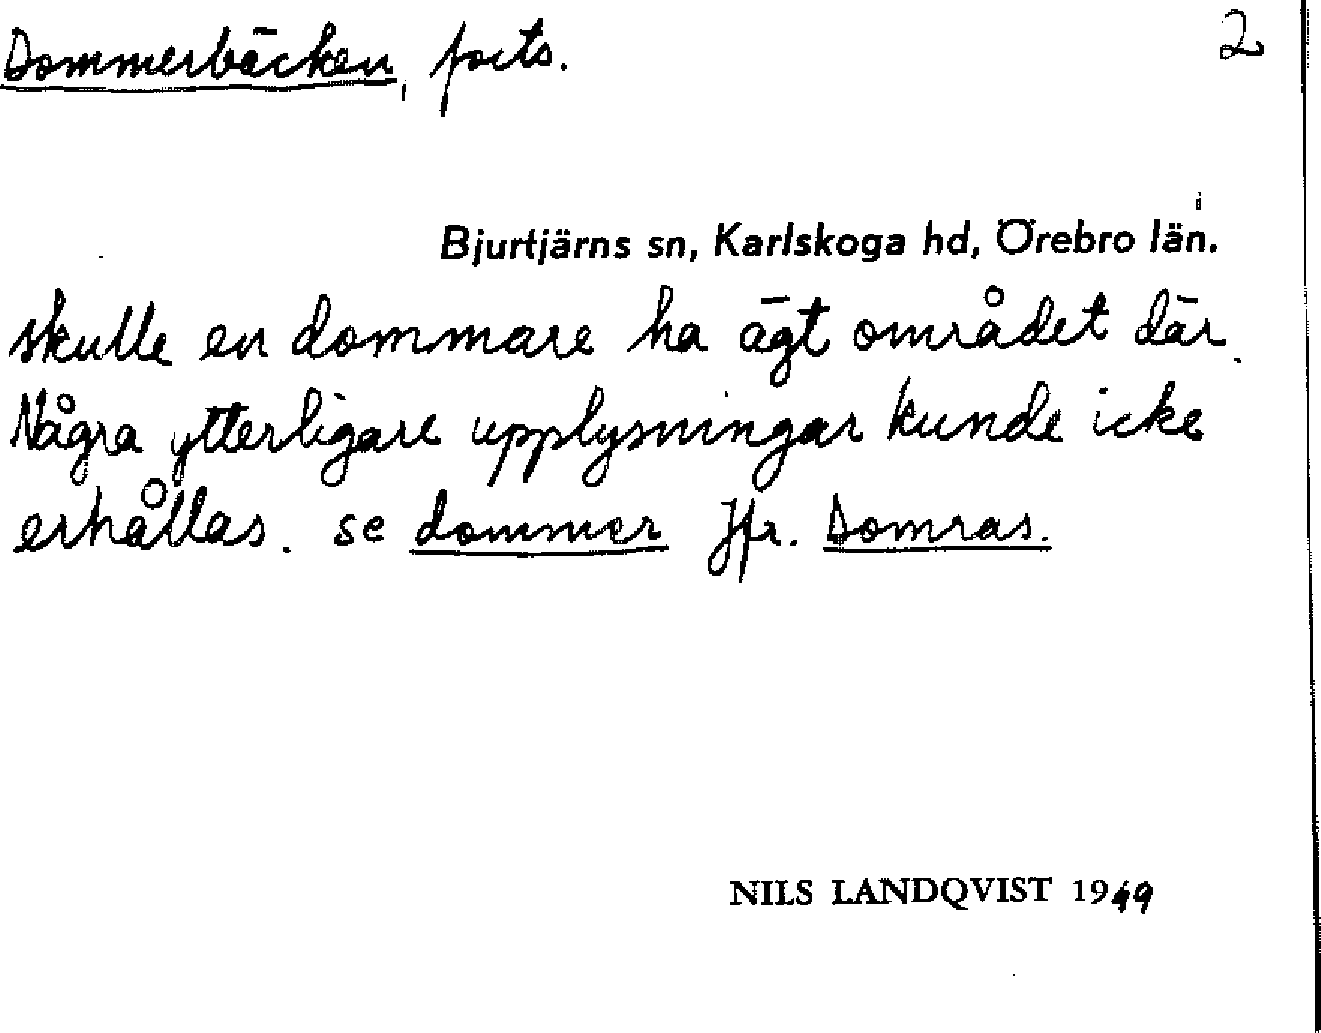 Dommerbäcken, forts. 2
Bjurtjärns sn, Karlskoga hd, Örebro län.
skulle en dommare ha ägt området där.
Några ytterligare upplysningar kunde icke
erhållas. se dommer Jfr. Domras.
NILS LANDQVIST 1949